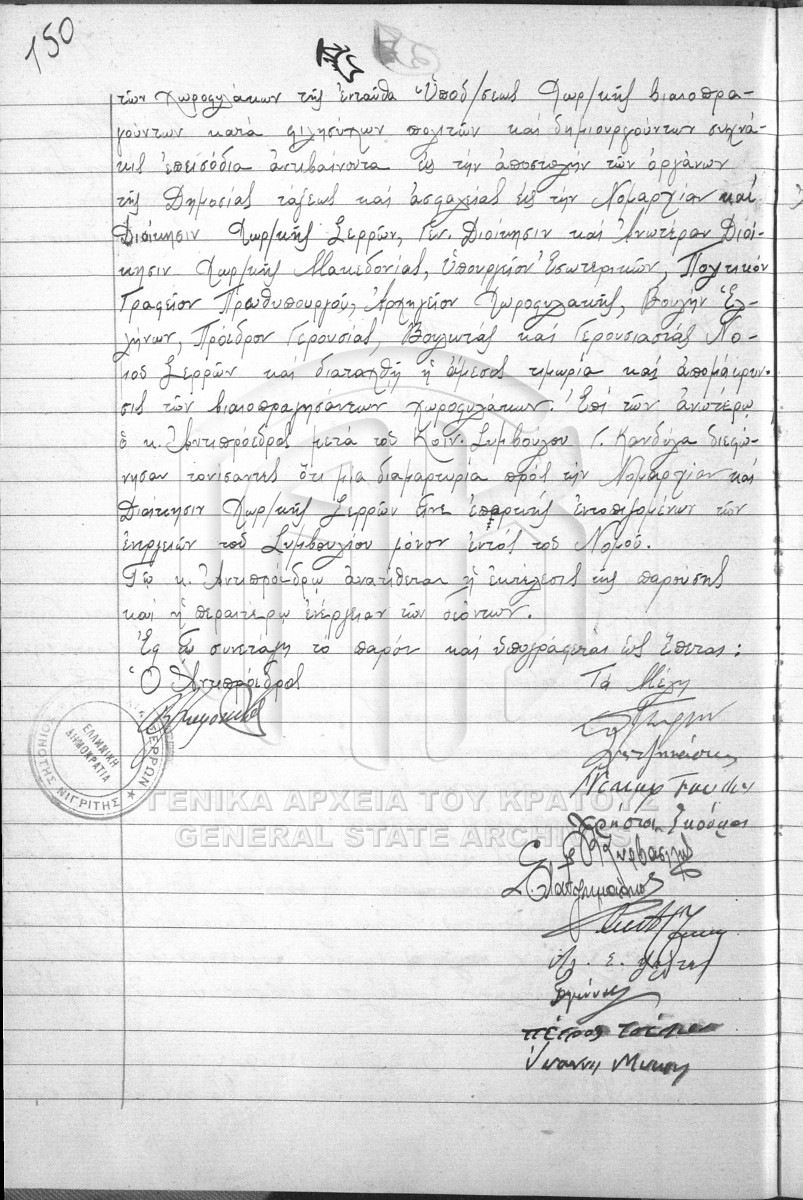 150
τῶν χωροφυλάκων τῆς ἐνταῦθα Ὑποδ/σεως Χωρ/κῆς βιαιοπρα-
γούντων κατά φιλησύχων πολιτῶν καί δημιουργούντων συχνά-
κις ἐπεισόδια ἀντιβαίνοντα εἰς τήν ἀποστολήν τῶν ὀργάνων
τῆς Δημοσίας τάξεως καί ἀσφαλείας εἰς τήν Νομαρχίαν καί
Διοίκησιν Χωρ/κῆς Σερρῶν, Γεν. Διοίκησιν καί Ἀνωτέραν Διοί-
κησιν Χωρ/κῆς Μακεδονίας, Ὑπουργεῖον Ἐσωτερικῶν, Πολιτικόν
Γραφεῖον Πρωθυπουργοῦ, Ἀρχηγεῖον Χωροφυλακῆς, Βουλήν Ἑλ-
λήνων, Πρόεδρον Γερουσίας, Βουλευτάς καί Γερουσιαστάς Νο-
μοῦ Σερρῶν καί διαταχθῇ ἡ ἄμεσος τιμωρία καί ἀπομάκρυν-
σις τῶν βιαιοπραγησάντων χωροφυλάκων. Ἐπί τῶν ἀνωτέρω
ὁ κ. Ἀντιπρόεδρος μετά τοῦ Κοιν. Συμβούλου Γ. Κανδύλα διεφώ-
νησαν τονίσαντες ὅτι μια διαμαρτυρία πρός τήν Νομαρχίαν καί
Διοίκησιν Χωρ/κῆς Σερρῶν εἶνε ἐπαρκής ἐντοπιζομένων τῶν
ἐνεργειῶν τοῦ Συμβουλίου μόνον ἐντός τοῦ Νομοῦ.
Τῷ κ. Ἀντιπροέδρῳ ἀνατίθεται ἡ ἐκτέλεσις τῆς παρούσης
καί ἡ περαιτέρω ἐνέργειαν τῶν δεόντων.
Ἐφ ᾧ συνετάγη τό παρόν καί ὑπογράφεται ὡς ἕπεται:
Ὁ Ἀντιπρόεδρος Τά Μέλη
ΕΛΛΗΝΙΚΗ
ΔΗΜΟΚΡΑΤΙΑ
ΝΙΓΡΙΤΗΣ
ΣΕΡΡΩΝ
ΓΕΝΙΚΑ ΑΡΧΕΙΑ ΤΟΥ ΚΡΑΤΟΥΣ
GENERAL STATE ARCHIVES
Πέτρος